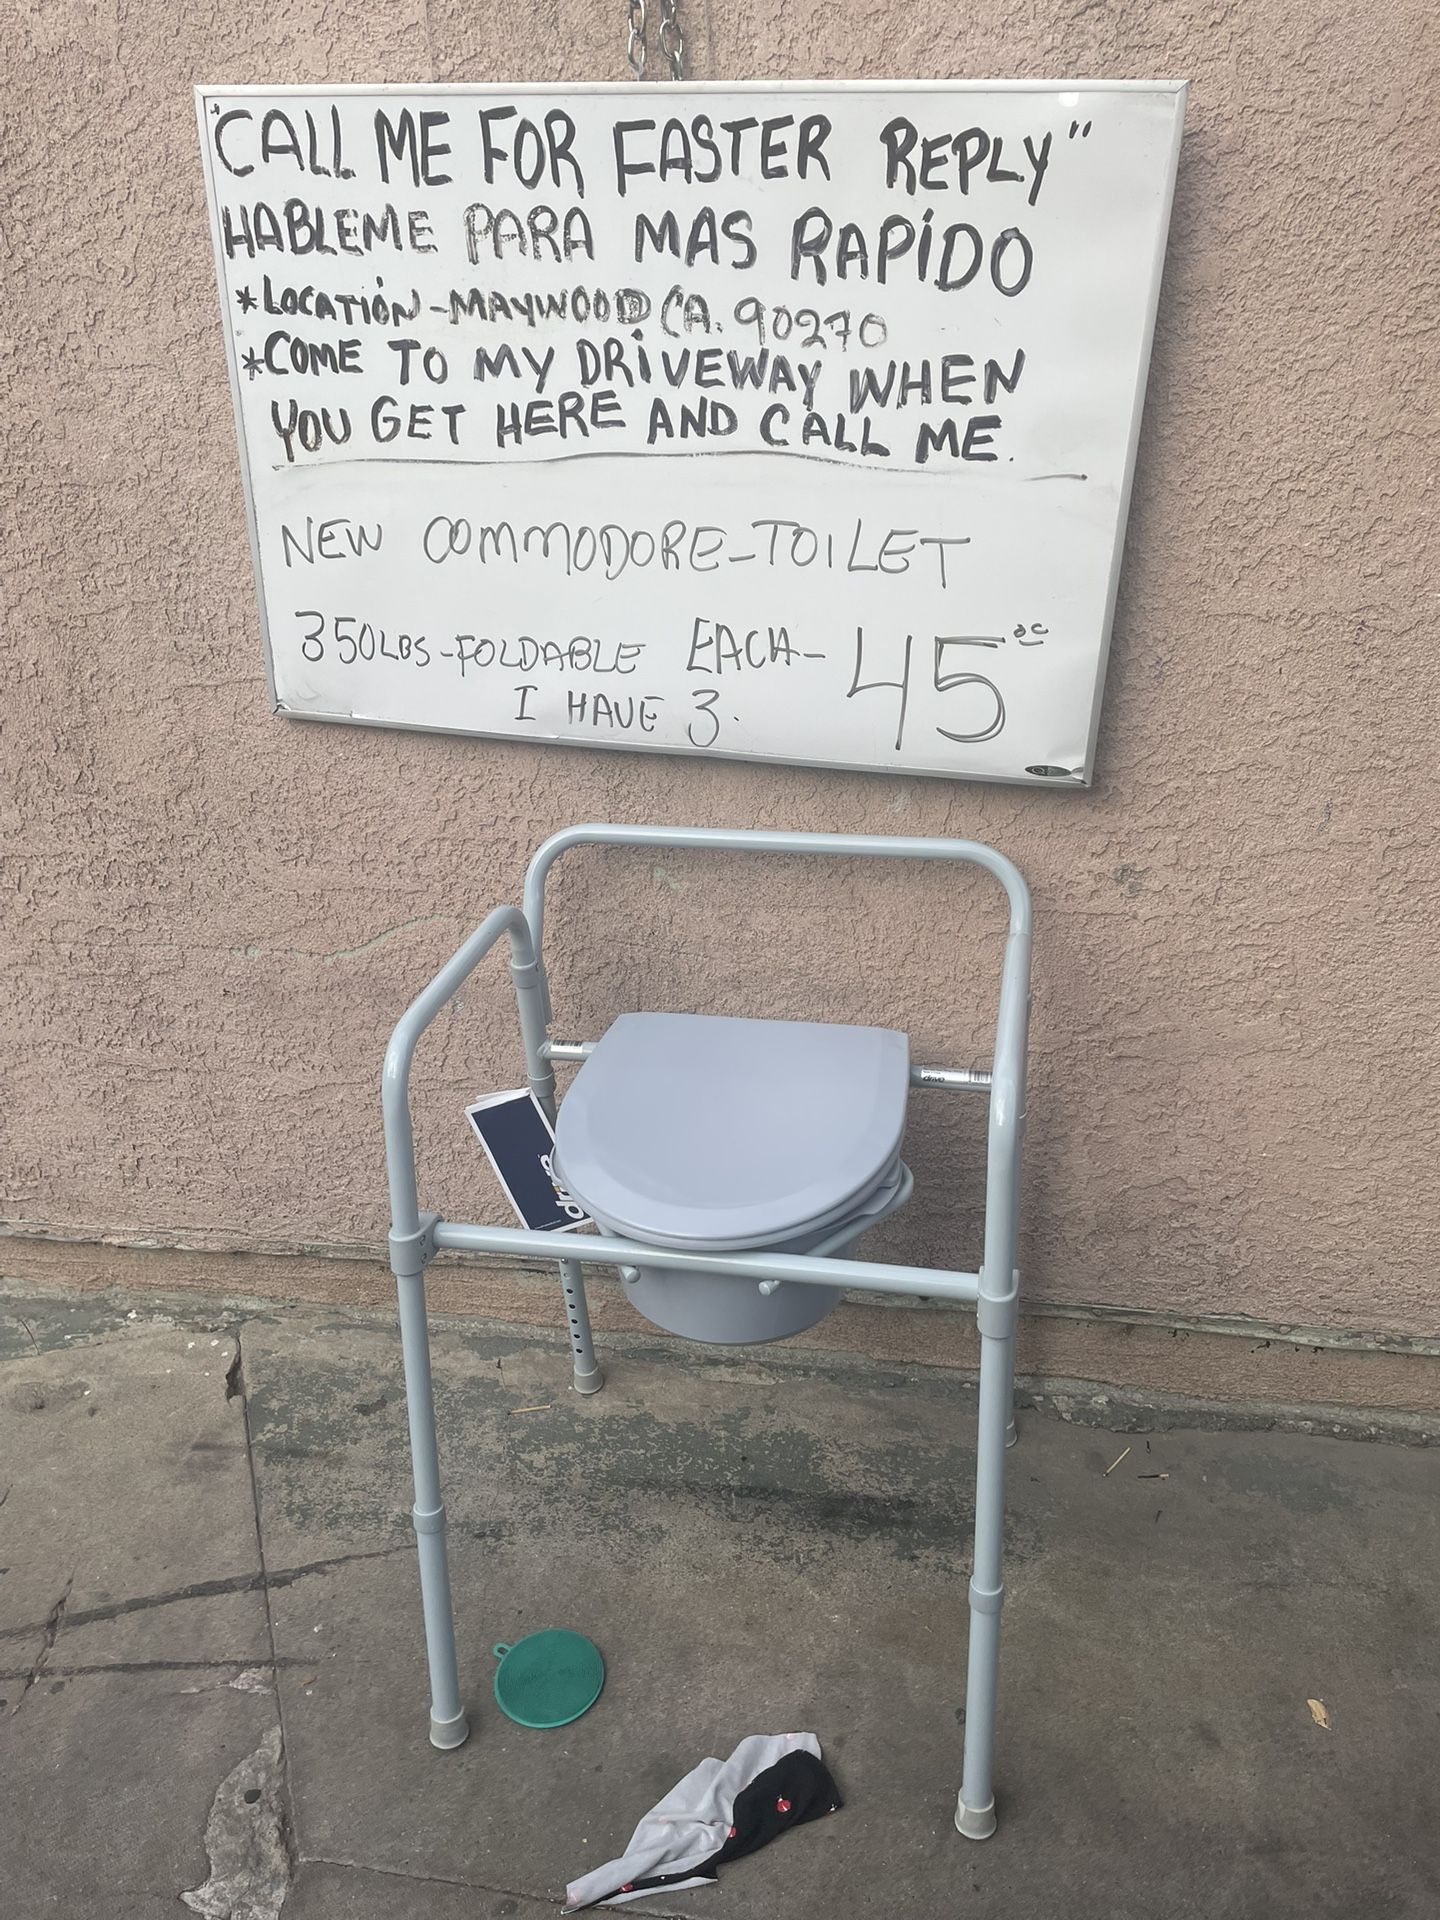 "CALL ME FOR FASTER REPLY"
HABLEME PARA MAS RAPIDO
*LOCATION-MAYWOOD CA. 90270
*COME TO MY DRIVEWAY WHEN
YOU GET HERE AND CALL ME.
NEW COMMODORE-TOILET
350LBS-FOLDABLE EACH- 45
I HAVE 3.
drive
drive